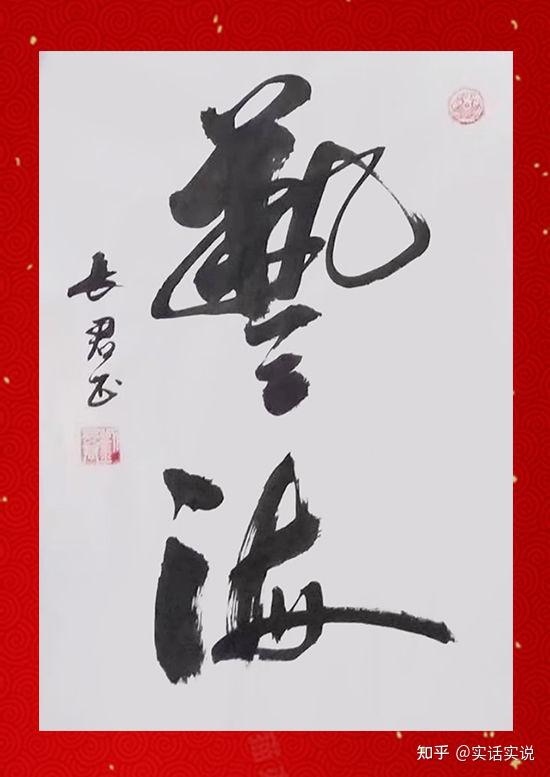 藝海
長君书
知乎 @实话实说